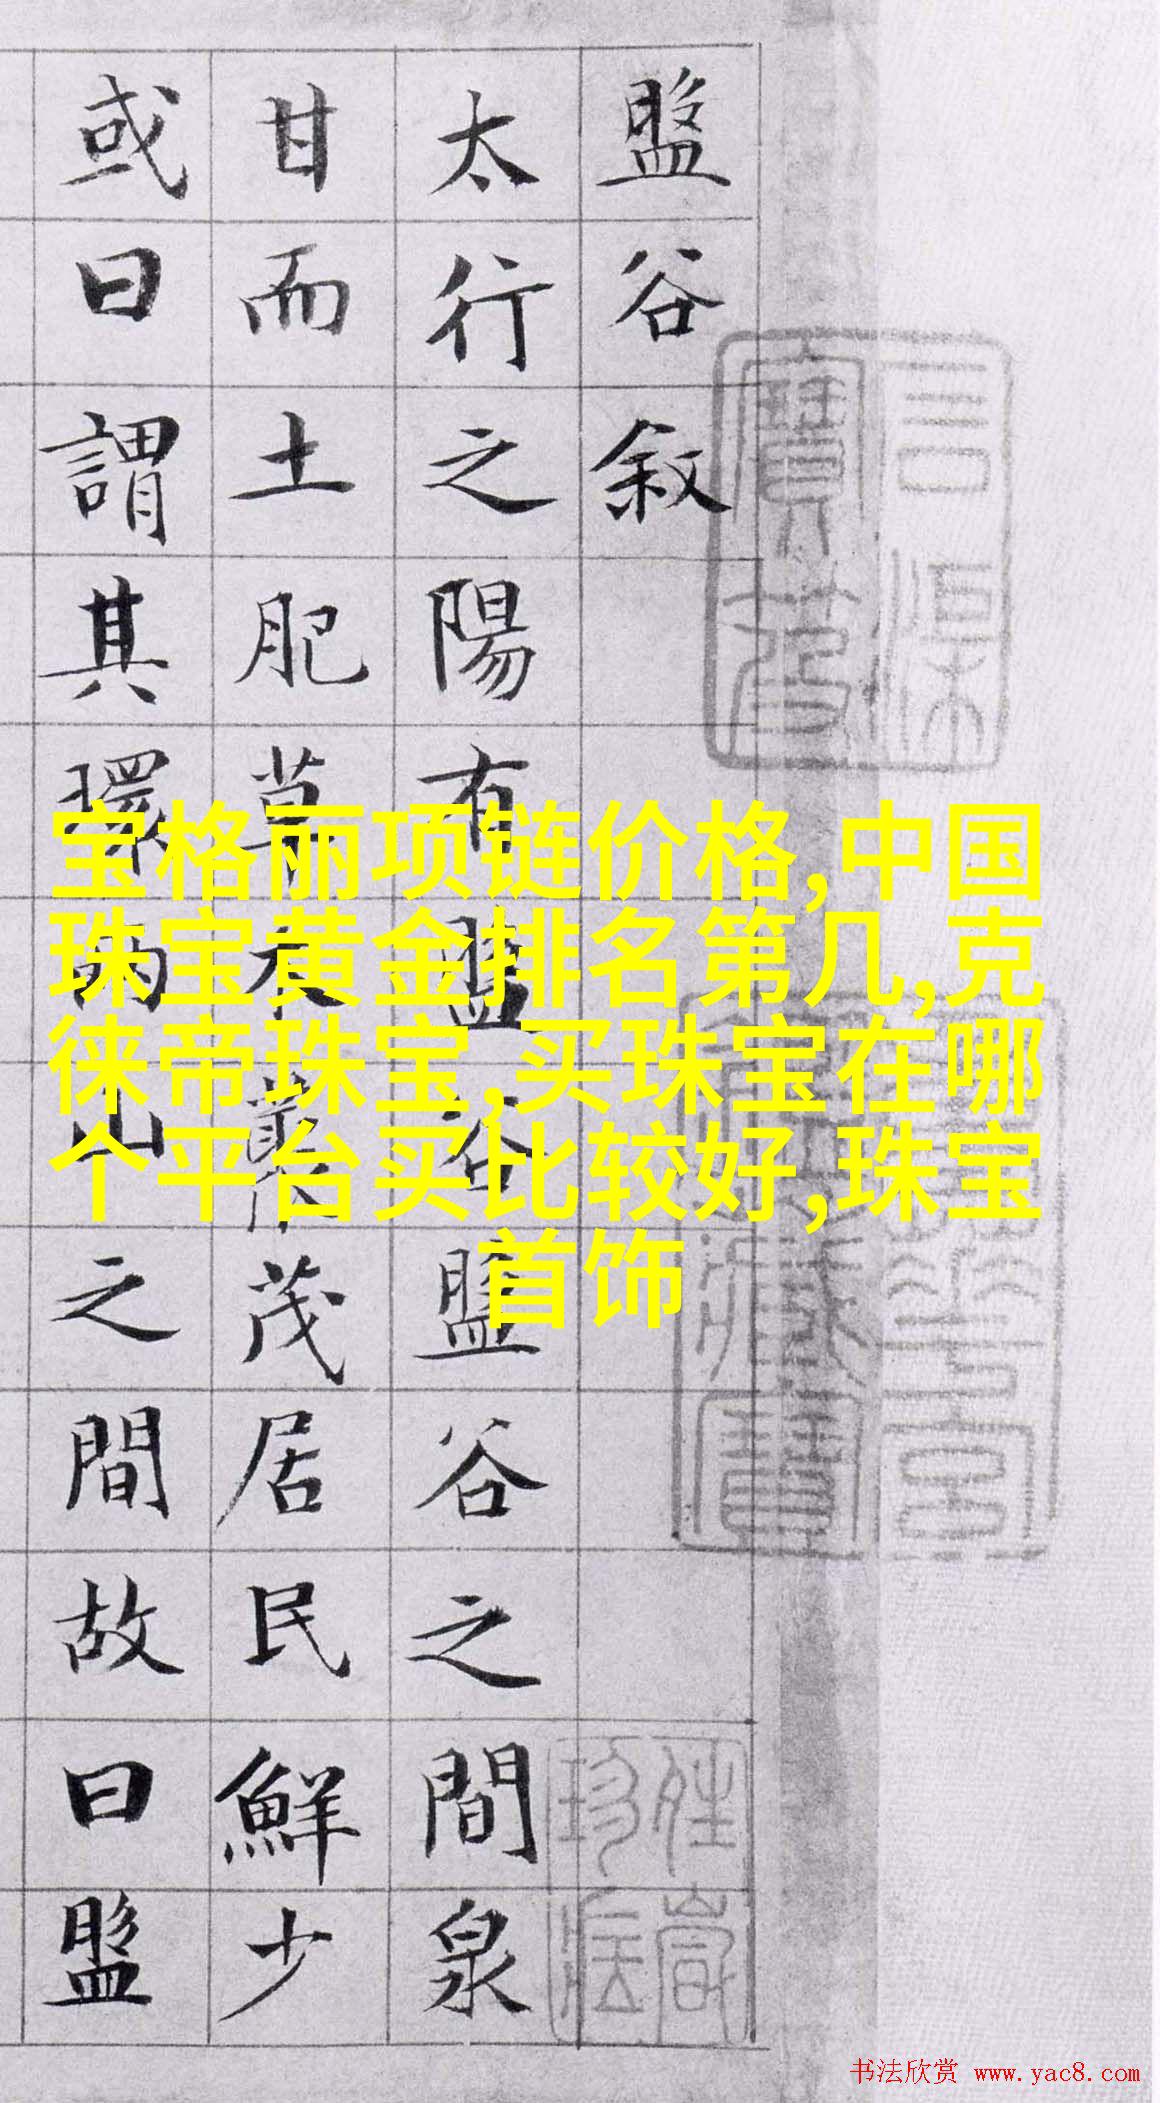 盤谷敘
太行之陽有盤谷盤谷之間泉
甘而土肥草木叢茂居民鮮少
或曰謂其環兩山之間故曰盤
宝格丽项链价格,中国
珠宝黄金排名第几,克
徕帝珠宝,买珠宝在哪
个平台买比较好,珠宝
首饰
书法欣赏 www.yac8.com